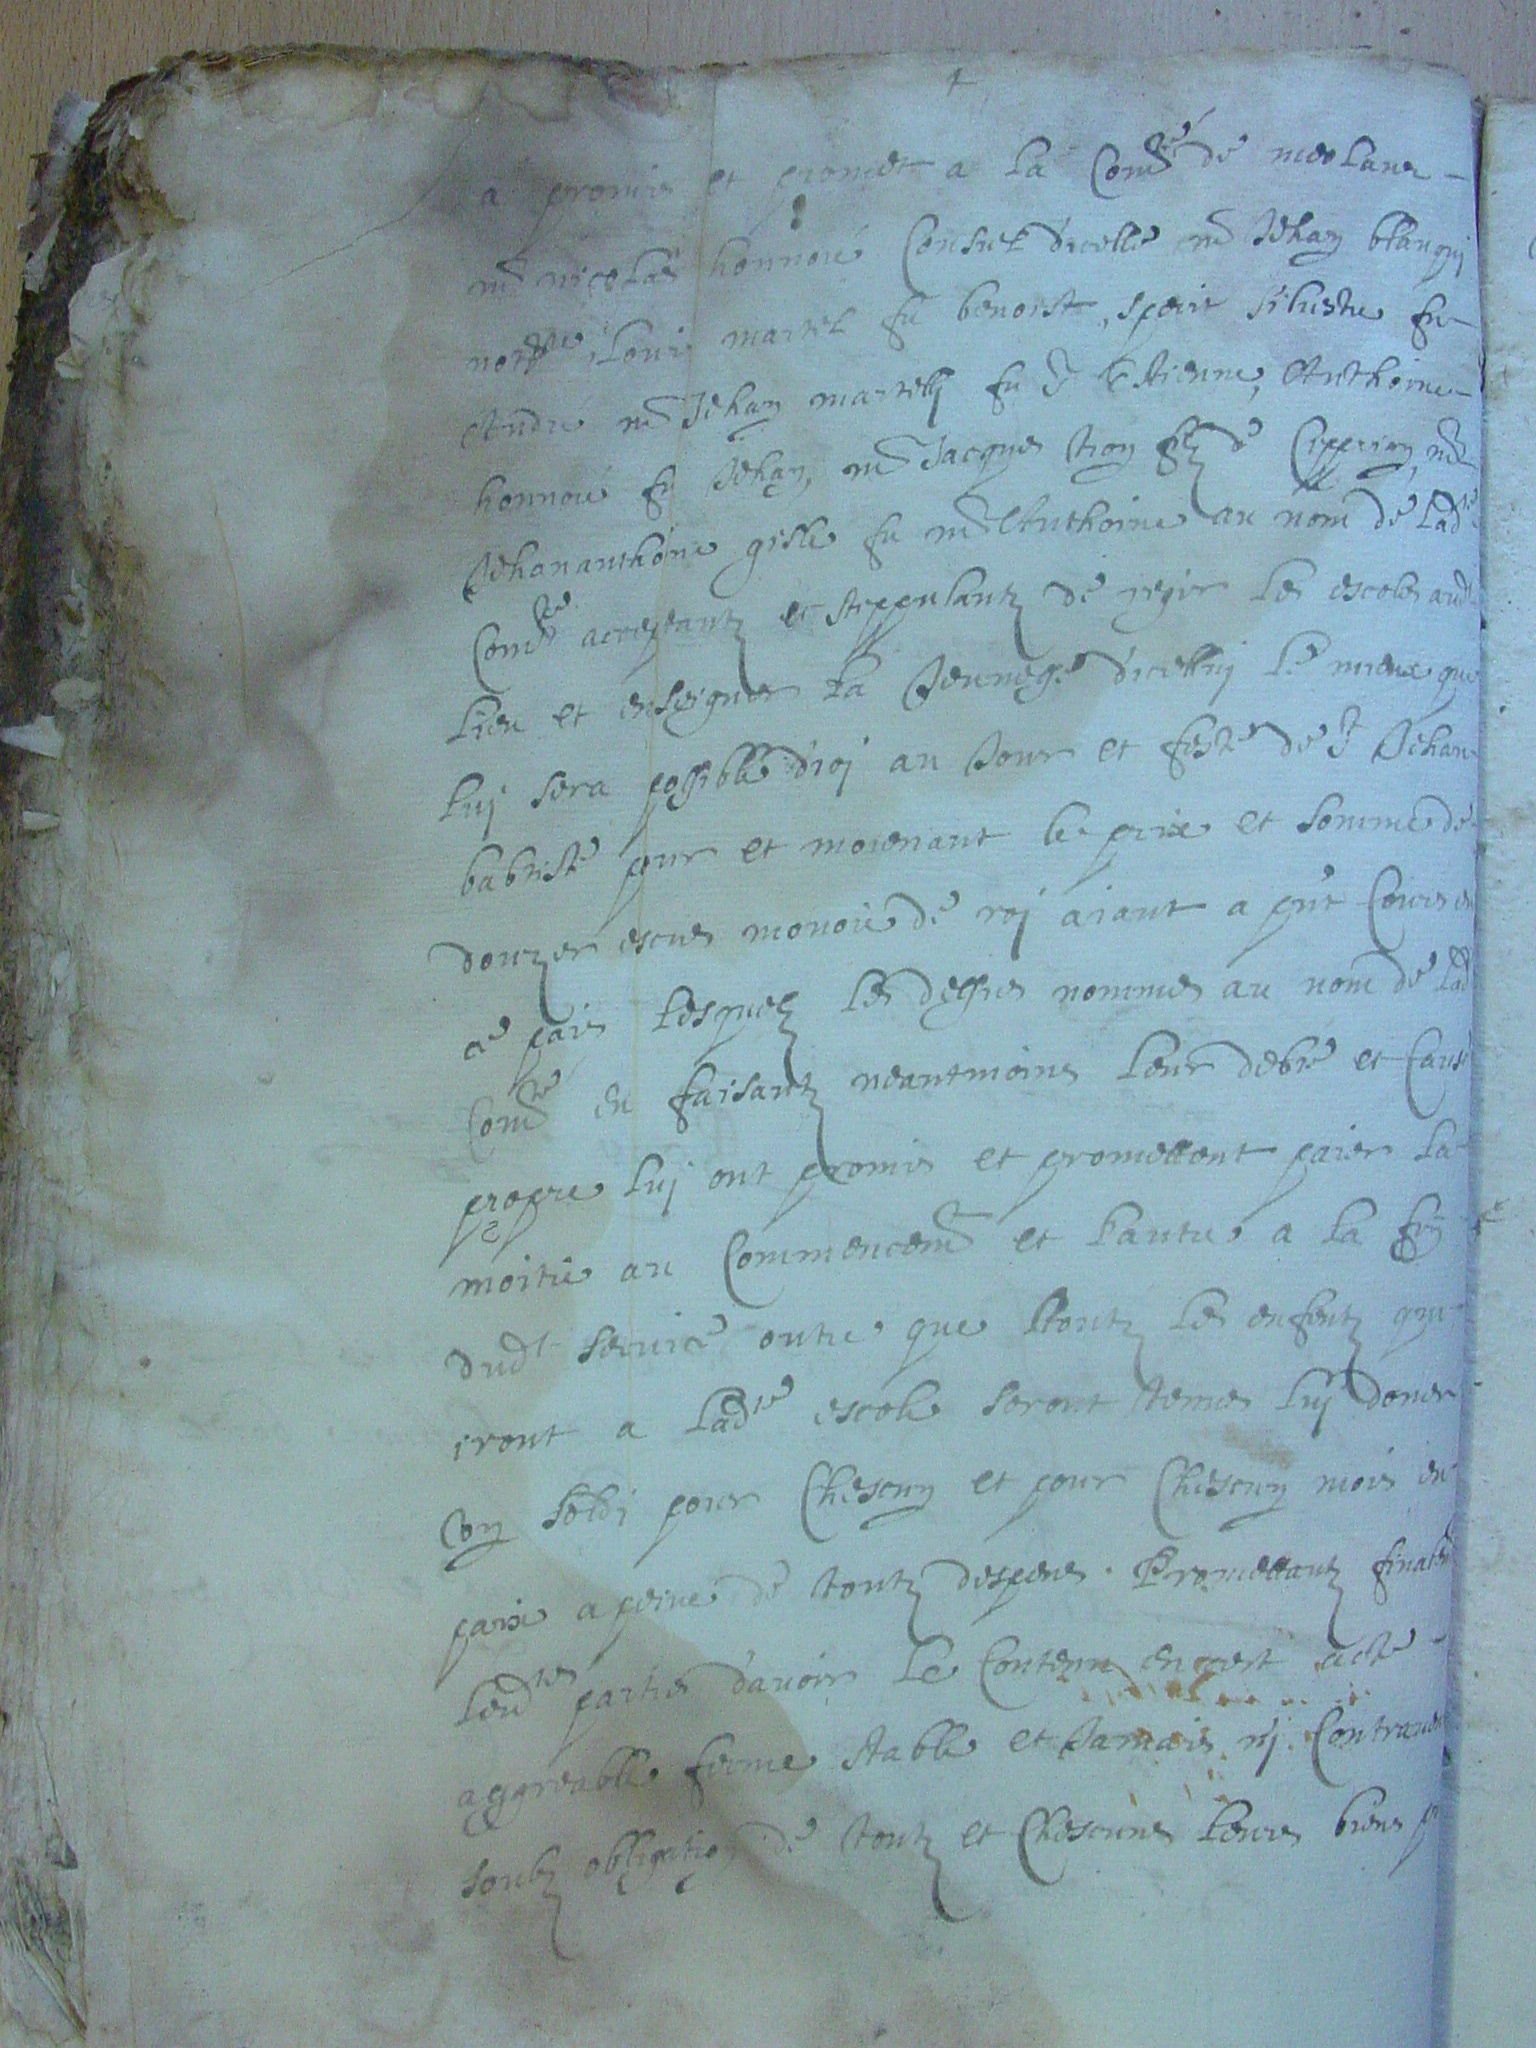 +
a promis et promet a la Com^té de meolans
m^e nicolas honnoré Consul d'icelle m^e Jehan blanqui
not^re Louis martel fu benoist, sperit silvestre fu
Andre m^e Jehan martelli fu S^r Estienne, Anthoine
honnoré fu Jehan, m^e Jacques tron filz de Ciprian, m^e
Jehananthoine gilli fu m^e Anthoine au nom de lad^te
Com^té acceptantz et stippulantz de regir les escoles aud^t
lieu et enseigner la Jeunesse d'icelluj le mieux que
luj sera possible d'icj au Jour et feste de S^t Jehan
babtiste pour et moienant le prix et somme de
douzes escus monoie de roj aiant a p'nt Cours en
ce pais lesquelz les dessus nommes au nom de lad
Com^té en faisantz neantmoins leur debte et Cause
propre luj ont promis et promettent paier la
moitie au Commencem^t et l'autre a la fin
dud^t service outre que toutz les enfentz qui
iront a lad^te escole seront tenus luj doner
Un soldi pour Chescun et pour Chescun mois en
paix a peine de toutz despens. Promettantz finalem^t
lesd^tes parties d'avoir le Contenu en cest acte
aggreable ferme stable et Jamais nj Contravenir
soubz obligation de toutz et Chescuns leurs biens p